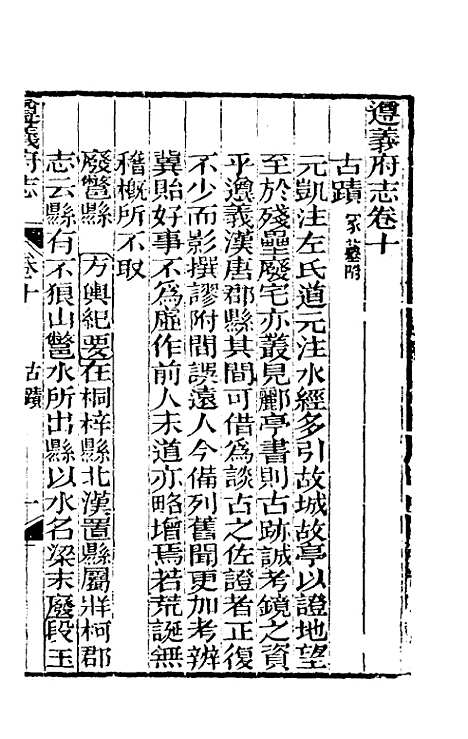 遵義府志卷十
古蹟 冢墓附
元凱注左氏道元注水經多引故城故亭以證地望
至於殘壘廢宅亦叢見酈亭書則古跡誠考鏡之資
乎遵義漢唐郡縣其間可借為談古之佐證者正復
不少而影撰謬附間誤遠人今備列舊聞更加考辨
冀貽好事不為虛作前人未道亦略增焉若荒誕無
稽概所不取
廢鄨縣 方輿紀要在桐梓縣北漢置縣屬牂柯郡
志云縣有不狼山鄨水所出縣以水名梁末廢段玉
遵義府志 卷十 古蹟 一